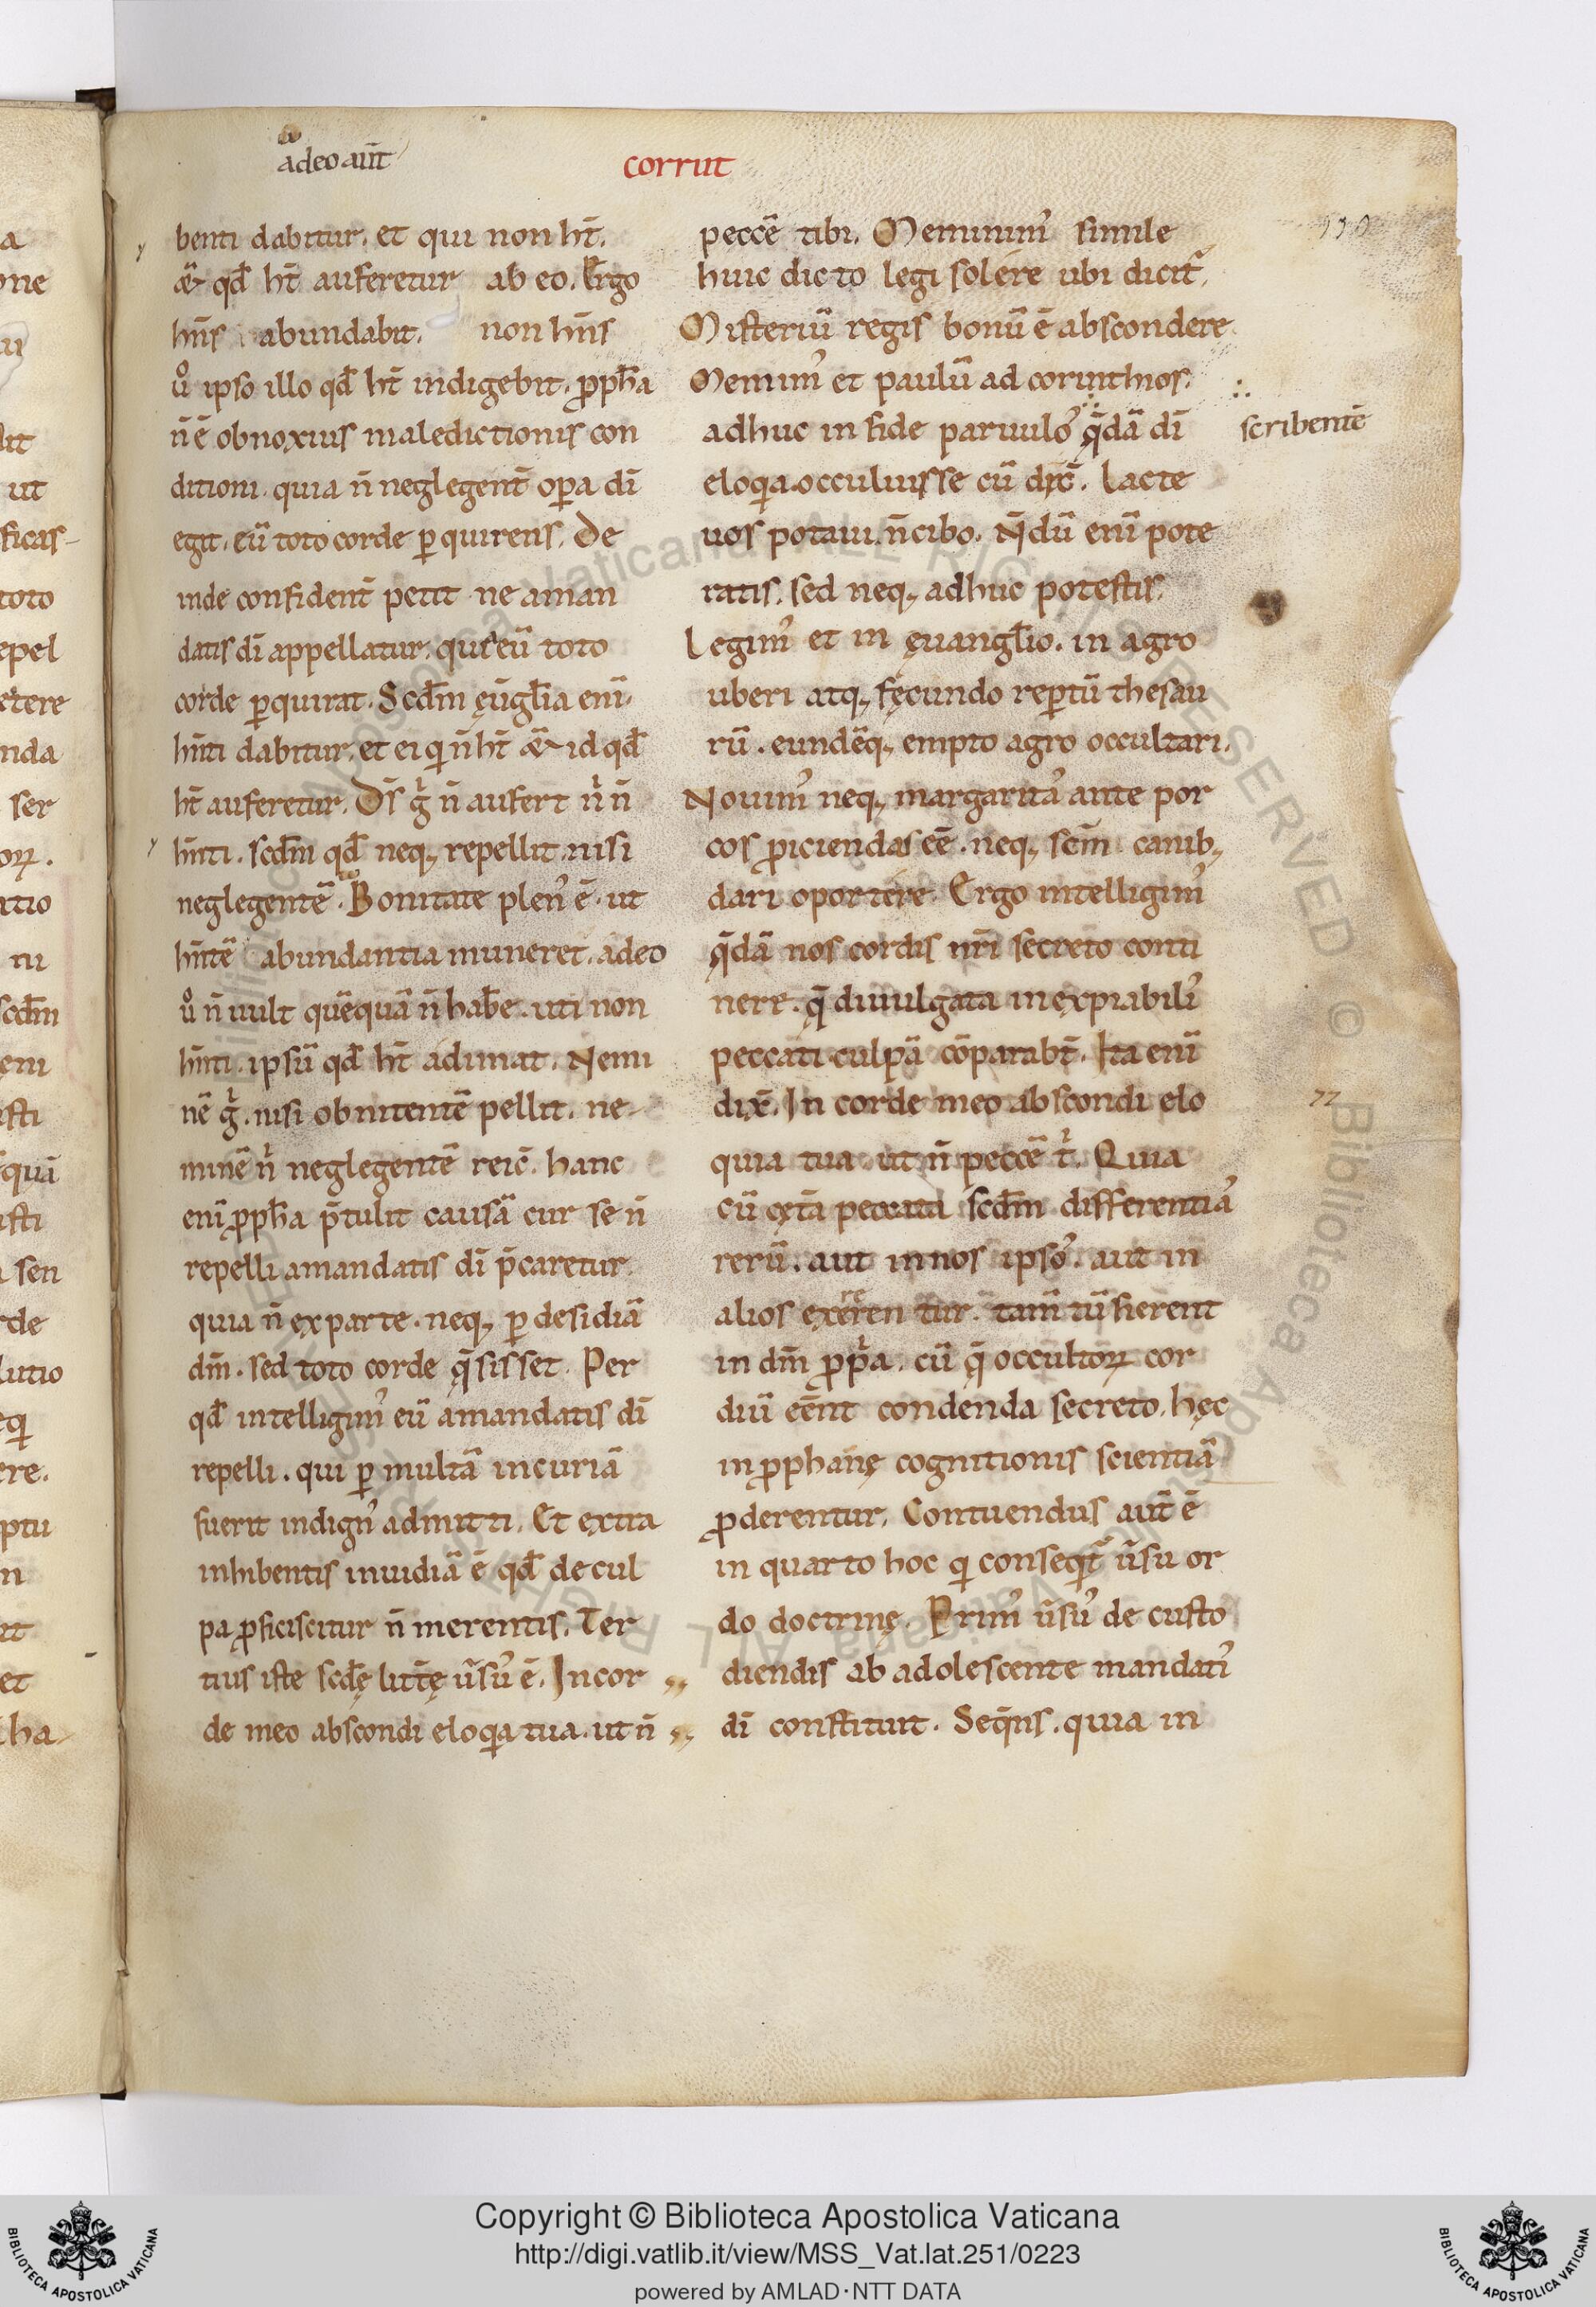 adeo aut̄
corrut
benti dabitur. et qui non ht̄.
& qd̄ ht̄ auferetur ab eo. Ergo
hn̄s abundabit. non hn̄s
ů ipso illo qd̄ ht̄ indigebit. ꝓph̄a
n̄ ē obnoxius maledictionis con
ditioni. quia n̄ neglegent̄ oꝑa dī
egit. eū toto corde ꝑquirens. De
inde confident̄ petit ne aman
datis dī appellatur. qui eū toto
corde ꝑquirat. Scd̄m ęūgl̄ia enī
hn̄ti dabitur. et ei qi n̄ ht̄ & id qd̄
ht̄ auferetur. Dī̄s gͥ n̄ aufert nͥ n̄
hn̄ti. scd̄m qd̄ neq; repellit nisi
neglegentē. Bonitate plen᾽ ē. ut
hn̄tē abundantia muneret. adeo
ů n̄ uult quēquā n̄ hab̄e. uti non
hn̄ti. ipsū qd̄ ht̄ adimat. Nemi
nē gͥ. nisi obnitentē pellit. ne
minē nͥ neglegentē reic̄. hanc
enī ꝓph̄a p̄tulit causā cur se n̄
repelli amandatis dī p̄caretur.
quia n̄ ex parte. neq; ꝑ desidiā
dm̄. sed toto corde q̄sisset. Per
qd̄ intelligim᾽ eū amandatis dī
repelli. qui ꝑ multā incuriā
fuerit indign᾽ admitti. Et extra
inhibentis inuidiā ē qd̄ de cul
pa ꝓficiscitur n̄ merentis. Ter
tius iste scd̄ę litt̄ę ūsu᾽ ē. In cor
de meo abscondi eloqia tua. ut n̄
peccē tibi. Meminim᾽ simile
huic dicto legi solere ubi dicit᾽.
Misteriū regis bonū ē abscondere
Memim᾽ et paulū ad corinthios.
scribentē
adhuc in fide paruulo᾽ q̄dā dī
eloqia occuluisse cū dic̄. Lacte
uos potaui. n̄ cibo. N̄dū enī pote
ratis. sed neq; adhuc potestis.
Legim᾽ et in ęuangl̄io. in agro
uberi atq; fęcundo reꝑtū thesau
rū. eundēq; empto agro occultari.
Nouim᾽ neq; margarita᾽ ante por
cos ꝓiciendas eē. neq; scm̄ canib;
dari oportere. Ergo intelligim᾽
q̄dā nos cordis nrī secreto conti
nere. q̄ diuulgata inexpiabili᾽
peccati culpā cōparabt̄. Ita enī
dix̄. In corde meo abscondi elo
quia tua. ut n̄ peccē tͥ. Quia
cū cęt̄a peccata scd̄m differentia᾽
rerū. aut in nos ipso᾽. aut in
alios exereren tur. tam̄ tū fierent
in dm̄ ꝓpͥa. cū q̄ occultoꝝ cor
diū eēnt condenda secreto. hęc
in ꝓphanę cognitionis scientiā
ꝓderentur. Contuendus aut̄ ē
in quarto hoc qi conseqit᾽ ūsu or
do doctrinę. Prim᾽ ūsu᾽ de custo
diendis ab adolescente mandati᾽
dī constituit. Seqn̄s. quia in
Copyright © Biblioteca Apostolica Vaticana
http://digi.vatlib.it/view/MSS_Vat.lat.251/0223
powered by AMLAD·NTT DATA
BIBLIOTECA APOSTOLICA VATICANA
BIBLIOTECA APOSTOLICA VATICANA